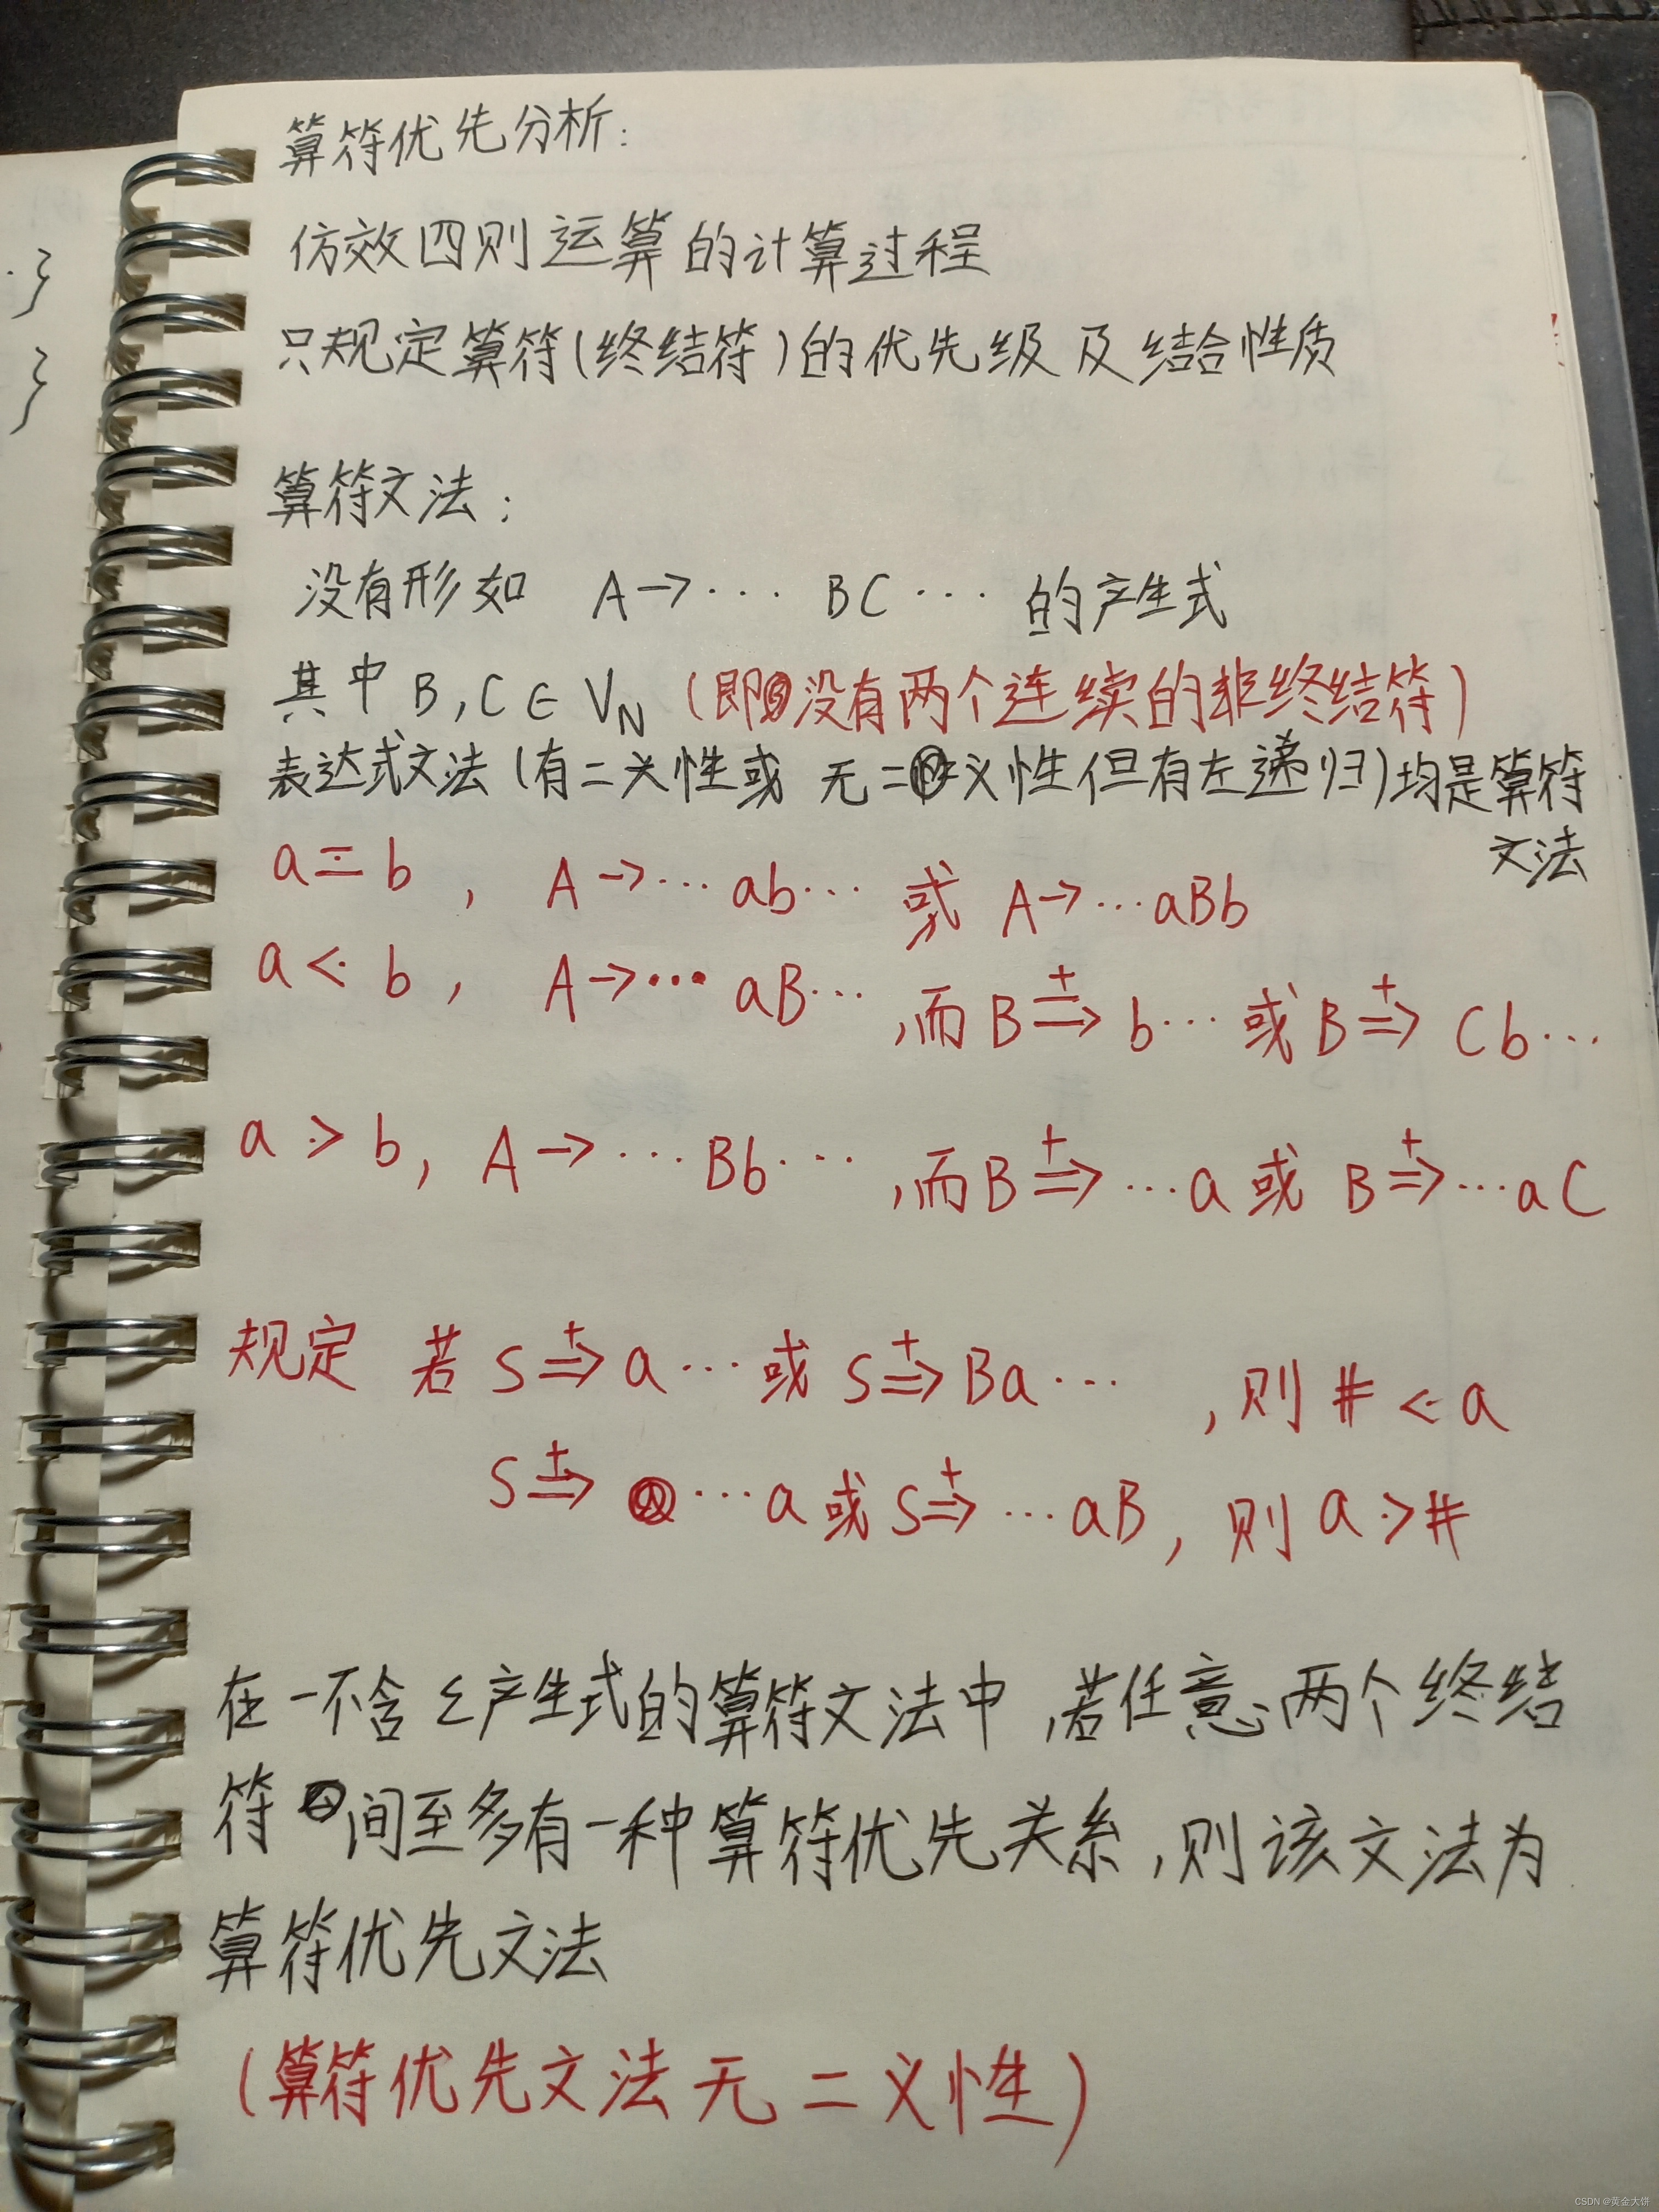 算符优先分析:
仿效四则运算的计算过程
只规定算符(终结符)的优先级及结合性质
算符文法:
没有形如 A→··· BC ··· 的产生式
其中 B,C∈VN (即没有两个连续的非终结符)
表达式文法(有二义性或 无二义性但有左递归)均是算符
文法
a≖b , A→···ab··· 或 A→···aBb
a⋖b , A→···aB··· ,而B⇒+ b···或B⇒+ Cb···
a⋗b, A→···Bb··· ,而B⇒+ ···a或 B⇒+ ···aC
规定 若 S⇒+ a···或 S⇒+ Ba··· ,则 #⋖a
S⇒+ ···a或S⇒+ ···aB, 则 a⋗#
在一不含ε产生式的算符文法中,若任意两个终结
符间至多有一种算符优先关系,则该文法为
算符优先文法
(算符优先文法无二义性)
CSDN @黄金大饼